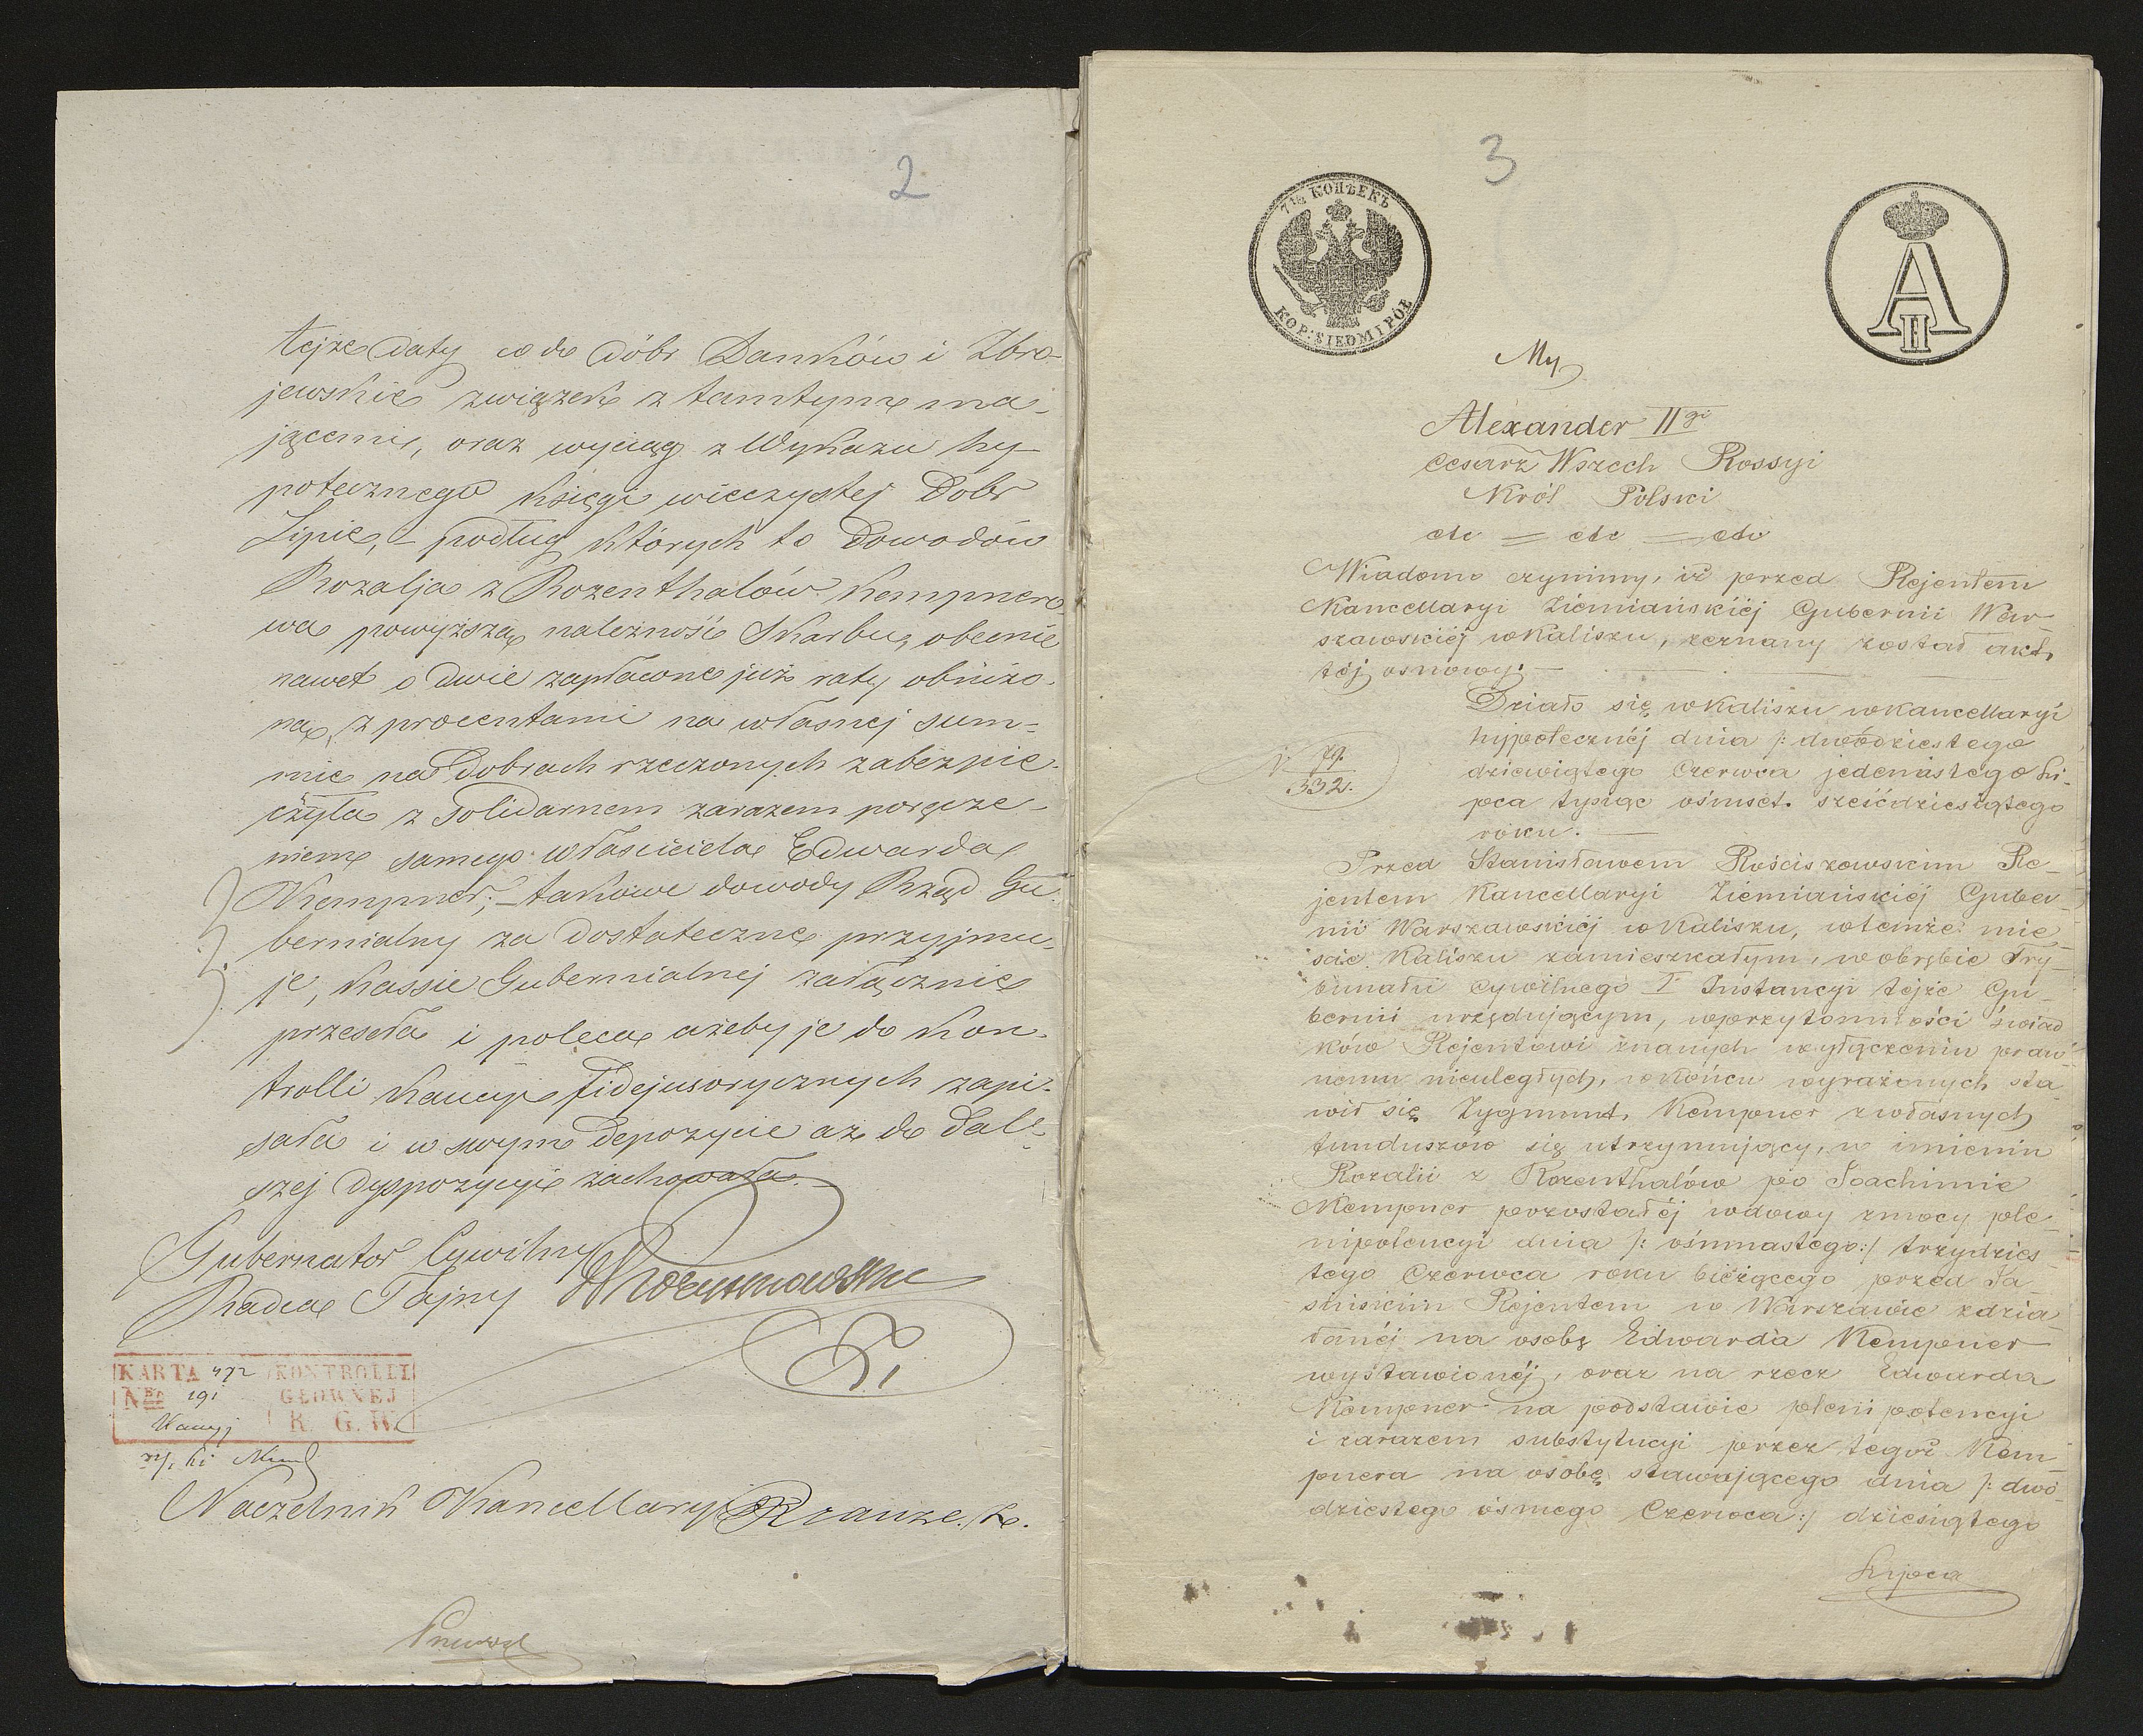 2
tejże daty co do dóbr Danków i Zbro-
jewskie związek z tamtymi ma-
jącemi, oraz wyciąg z Wykazu hy-
potecznego księgi wieczystej Dóbr
Lipie, – podług których to Dowodów
Rozalja z Rozenthalów Kempnero
wa powyższą należność Skarbu, obecnie
nawet o dwie zapłacone już raty obniżo-
ną, z procentami na własnej sum-
mie na Dobrach rzeczonych zabezpie-
czyła z solidarnem zarazem poręcze-
niem samego właściciela Edwarda
Kempner; – takowe dowody Rząd Gu-
bernialny za dostateczne przyjmu-
je, Kassie Gubernialnej załącznie
przeseła i poleca ażeby je do Kon-
trolli Kaucyi fidejusorycznych zapi-
sała i w swym Depozycie aż do dal-
szej dyspozycyi zachowała.
Gubernator Cywilny
Radca Tajny
KARTA 472 KONTROLLI
Nro 191 GŁÓWNEJ
Kaucyj R. G. W.
Naczelnik Kancellaryi Krauze.
3
7½ КОПѢЕКЪ
KOP: SIEDM I PÓŁ
A II
My
Alexander IIgi
Cesarz Wszech Rossyi
Król Polski
etc = etc = etc
Wiadomo czynimy, iż przed Rejentem
Kancellaryi Ziemiańskiéj Gubernii War-
szawskiéj w Kaliszu, zeznany został akt,
téj osnowy: –
Działo się w Kaliszu w Kancellaryi
hypotecznéj dnia /: dwódziestego
dziewiątego Czerwca jedenastego Li-
332.
pca tysiąc ośmset sześćdziesiątego
roku. –
Przed Stanisławem Rościszewskim Re-
jentem Kancellaryi Ziemiańskiéj Guber-
nii Warszawskiéj w Kaliszu, w temże mie
ście Kaliszu zamieszkałym, w obrębie Try-
bunału Cywilnego I Instancyi tejże Gu-
bernii urzędującym, w przytomności świad
ków Rejentowi znanych wyłączeniu praw
nemu nieuległych, w końcu wyrażonych sta-
wił się Zygmunt Kempner z własnych
funduszów się utrzymujący, w imieniu
Rozalii z Rozenthalów po Joachimie
Kempner pozostałéj wdowy z mocy ple-
nipotencyi dnia /: ośmnastego :/ trzydzies
tego Czerwca roku bieżącego przed Ja-
sińskim Rejentem w Warszawie zdzia
łanéj na osobę Edwarda Kempner
wystawionéj, oraz na rzecz Edwarda
Kempner na podstawie plenipotencyi
i zarazem substytucyi przez tegoż Kem-
pnera na osobę stawającego dnia /: dwó-
dziestego ósmego Czerwca :/ dziesiątego
Lipca